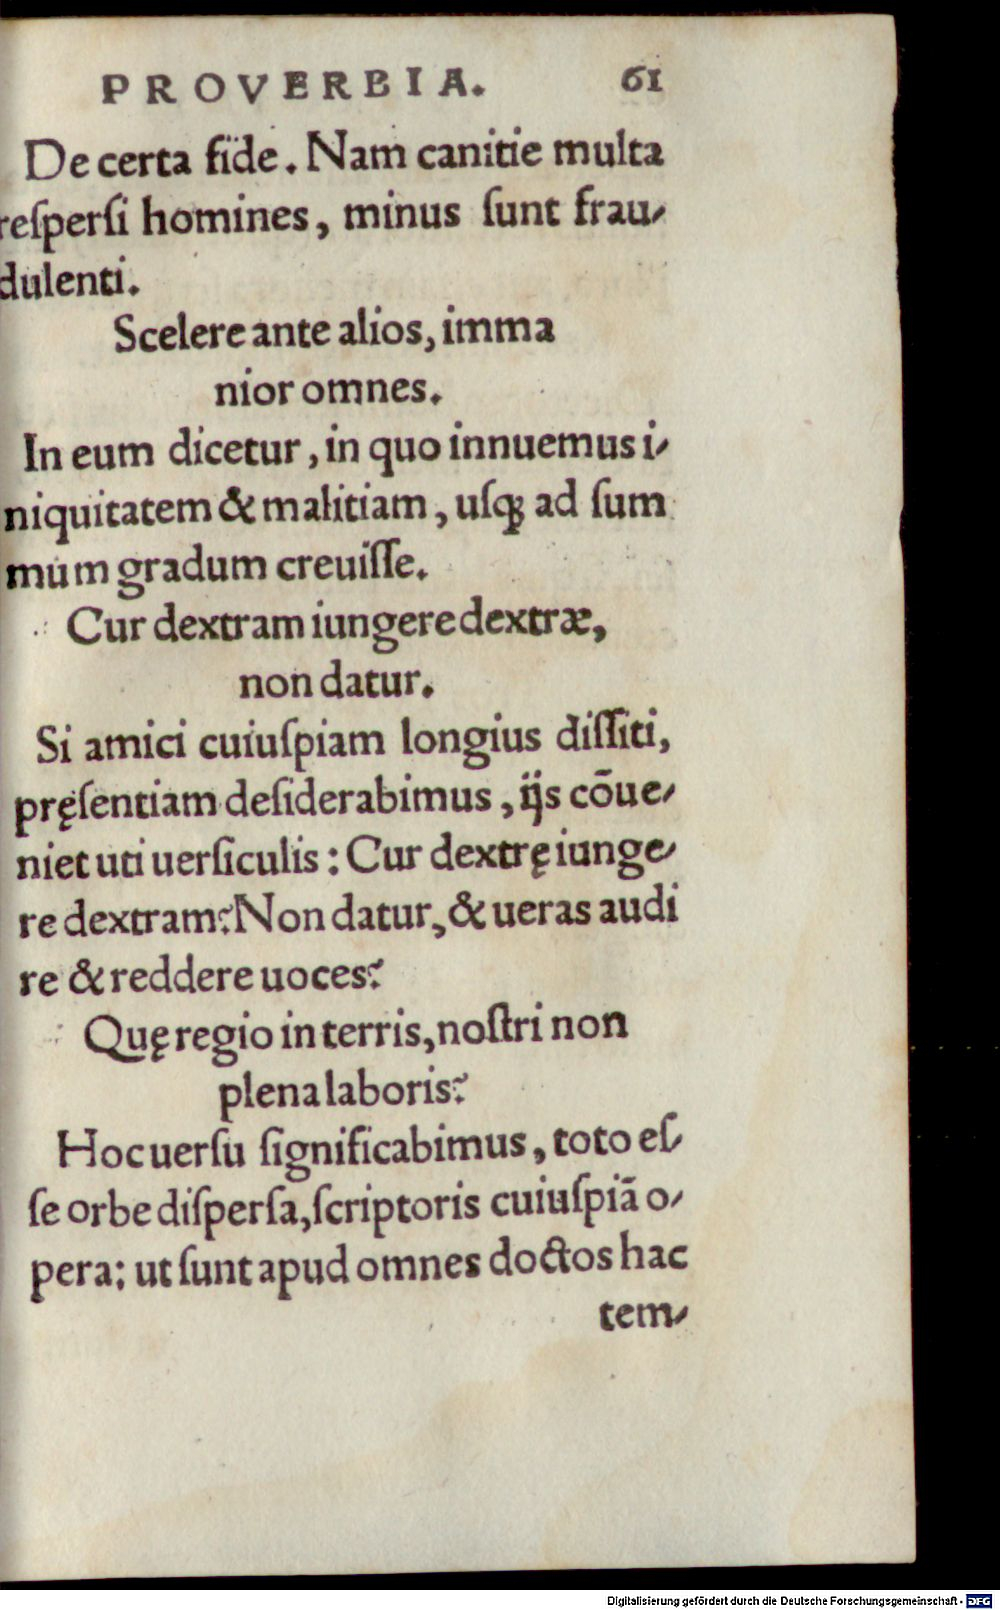 PROVERBIA. 61
De certa fide. Nam canitie multa
reſperſi homines, minus ſunt frau-
dulenti.
Scelere ante alios, imma
nior omnes.
In eum dicetur, in quo innuemus i-
niquitatem & malitiam, uſq; ad ſum
mum gradum creuiſſe.
Cur dextram iungere dextræ,
non datur.
Si amici cuiuſpiam longius diſſiti,
pręſentiam deſiderabimus, ijs cõue-
niet uti uerſiculis: Cur dextrę iunge-
re dextram? Non datur, & ueras audi
re & reddere uoces?
Quę regio in terris, noſtri non
plena laboris?
Hoc uerſu ſignificabimus, toto eſ-
ſe orbe diſperſa, ſcriptoris cuiuſpiã o-
pera: ut ſunt apud omnes doctos hac
tem-
Digitalisierung gefördert durch die Deutsche Forschungsgemeinschaft - DFG